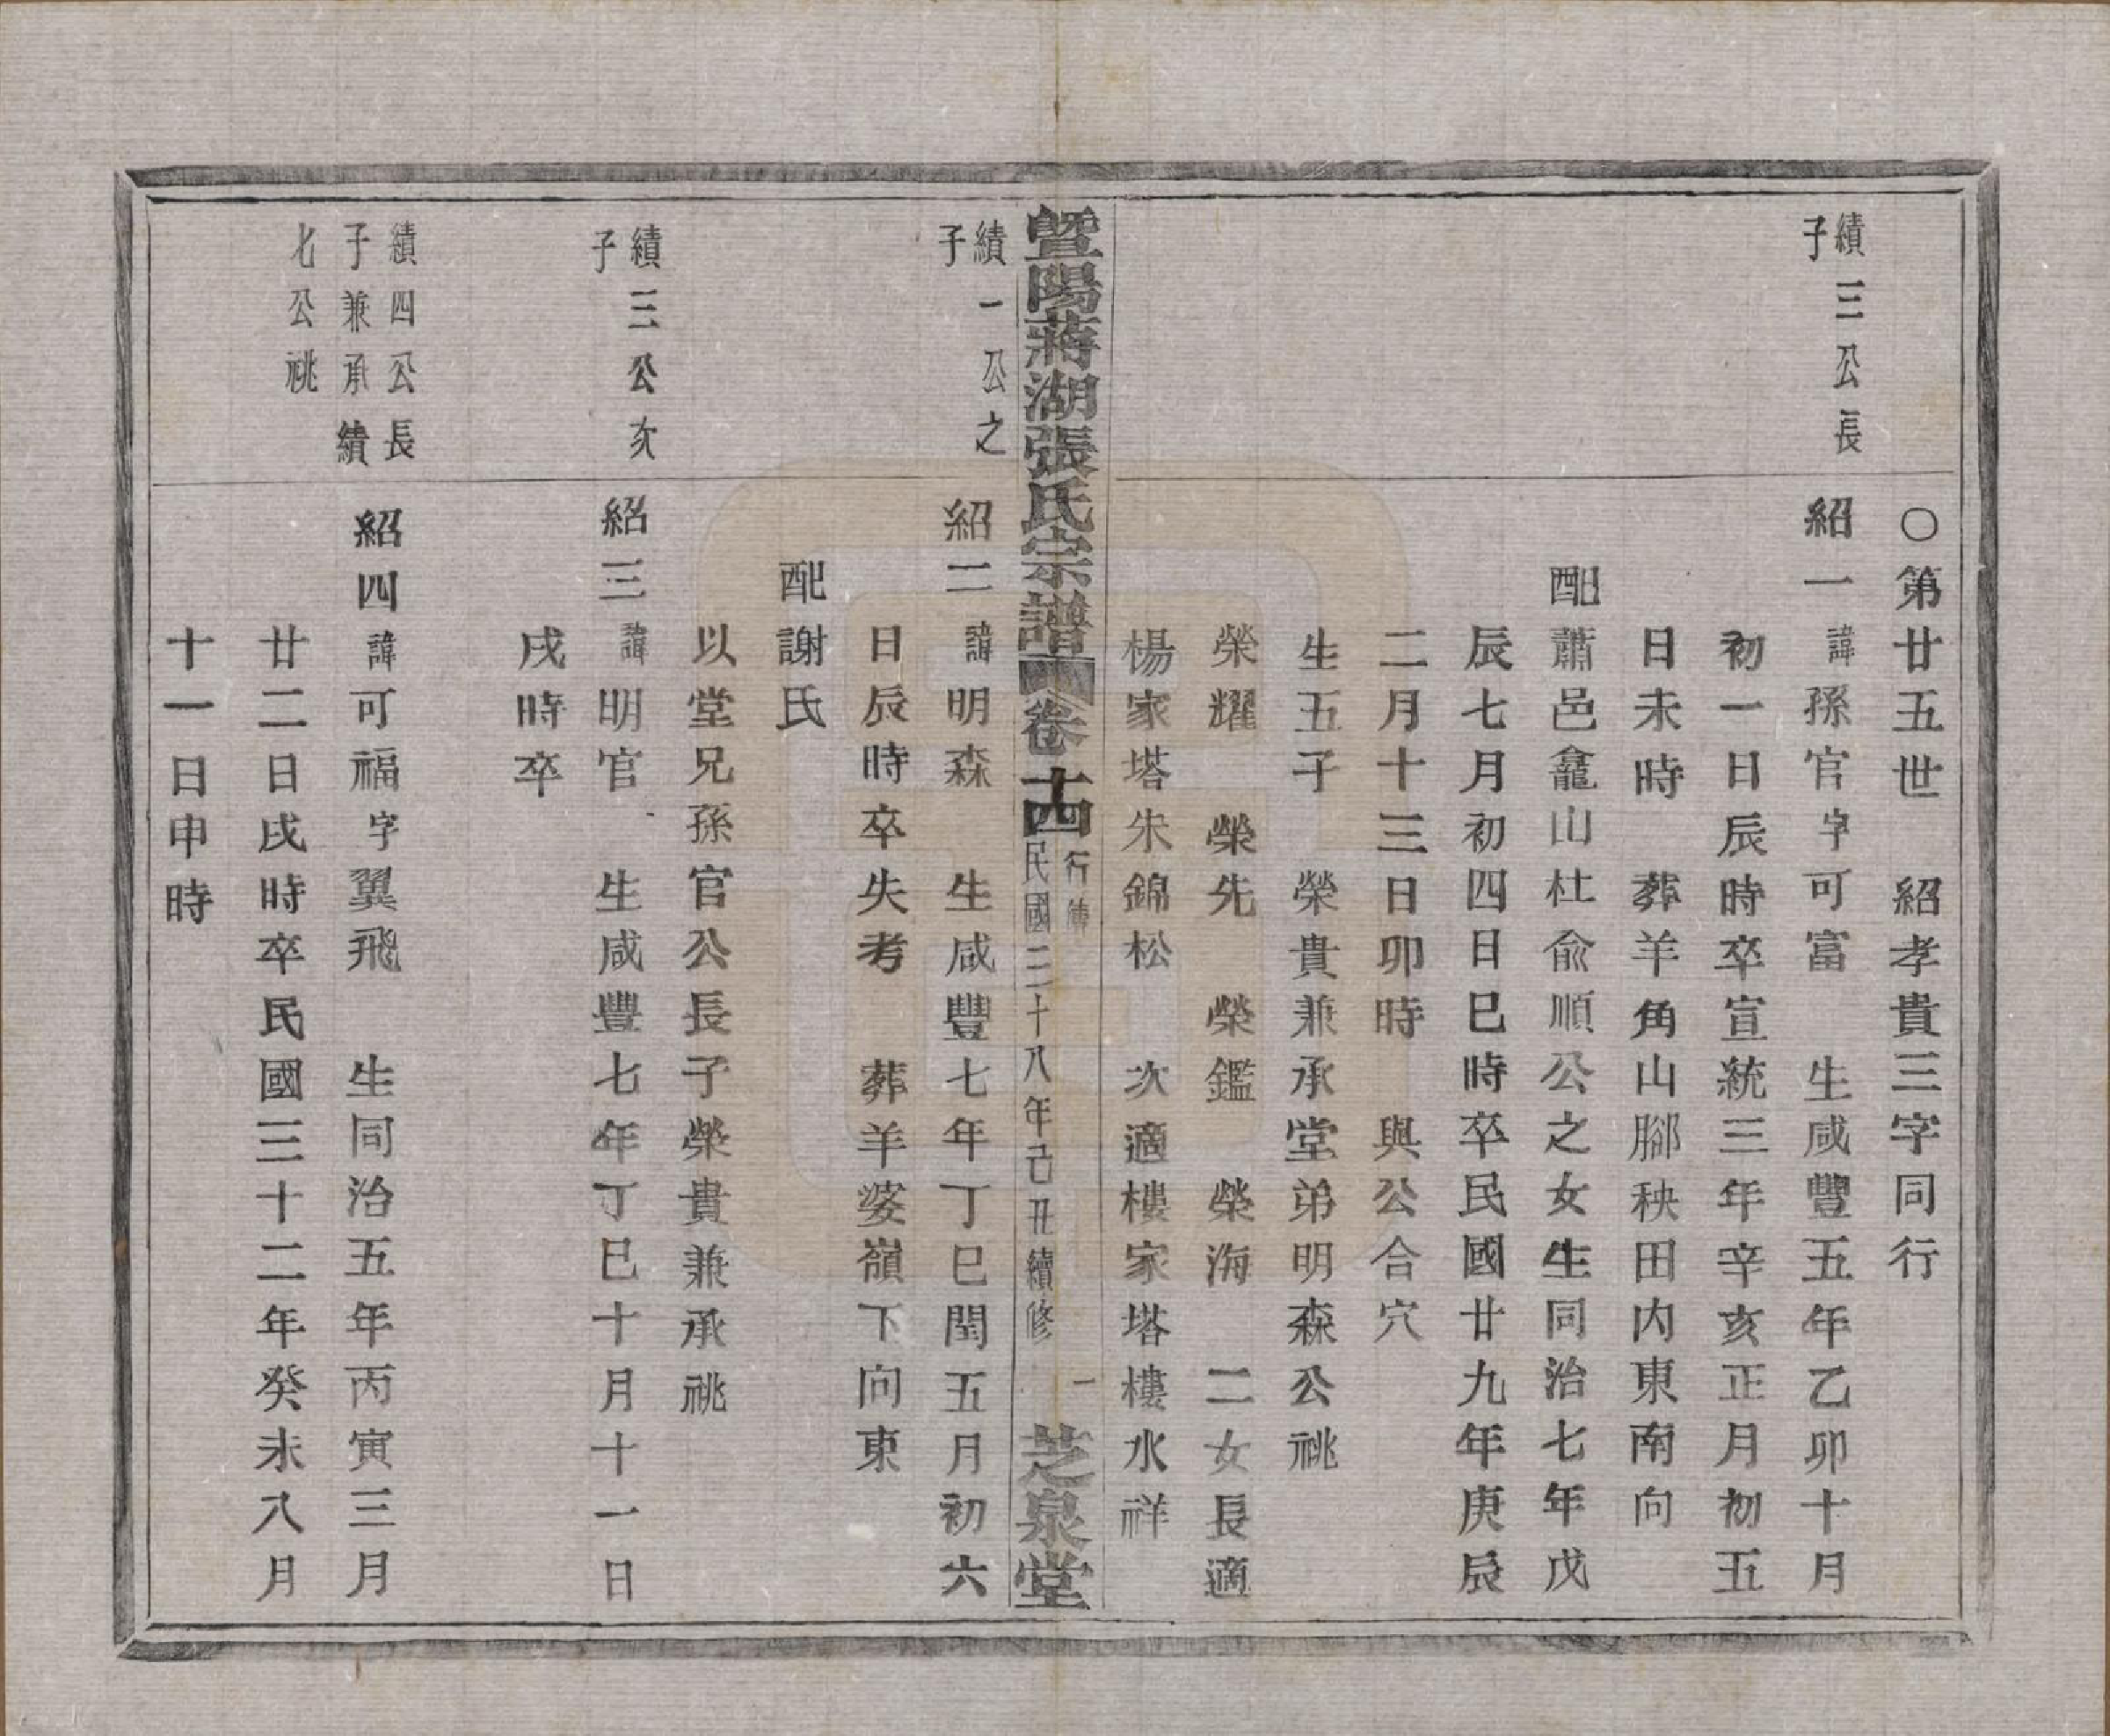 〇第廿五世　紹孝貴三字同行
績三公長
子
紹一諱孫官字可富　生咸豐五年乙卯十月
初一日辰時卒宣統三年辛亥正月初五
日未時　葬羊角山腳秧田內東南向
配蕭邑龕山杜俞順公之女生同治七年戊
辰七月初四日巳時卒民國廿九年庚辰
二月十三日卯時　與公合穴
生五子　榮貴兼承堂弟明森公祧
榮耀　榮先　榮鑑　榮海　二女長適
楊家塔朱錦松　次適樓家塔樓水祥
暨陽蔣湖張氏宗譜　卷十四　行傳　民國三十八年己丑續修　一　芝泉堂
績一公之
子
紹二諱明森　生咸豐七年丁巳閏五月初六
日辰時卒失考　葬羊婆嶺下向東
配謝氏
以堂兄孫官公長子榮貴兼承祧
績三公次
子
紹三諱明官　生咸豐七年丁巳十月十一日
戌時卒
績四公長
子兼承績
七公祧
紹四諱可福字翼飛　生同治五年丙寅三月
廿二日戌時卒民國三十二年癸未八月
十一日申時